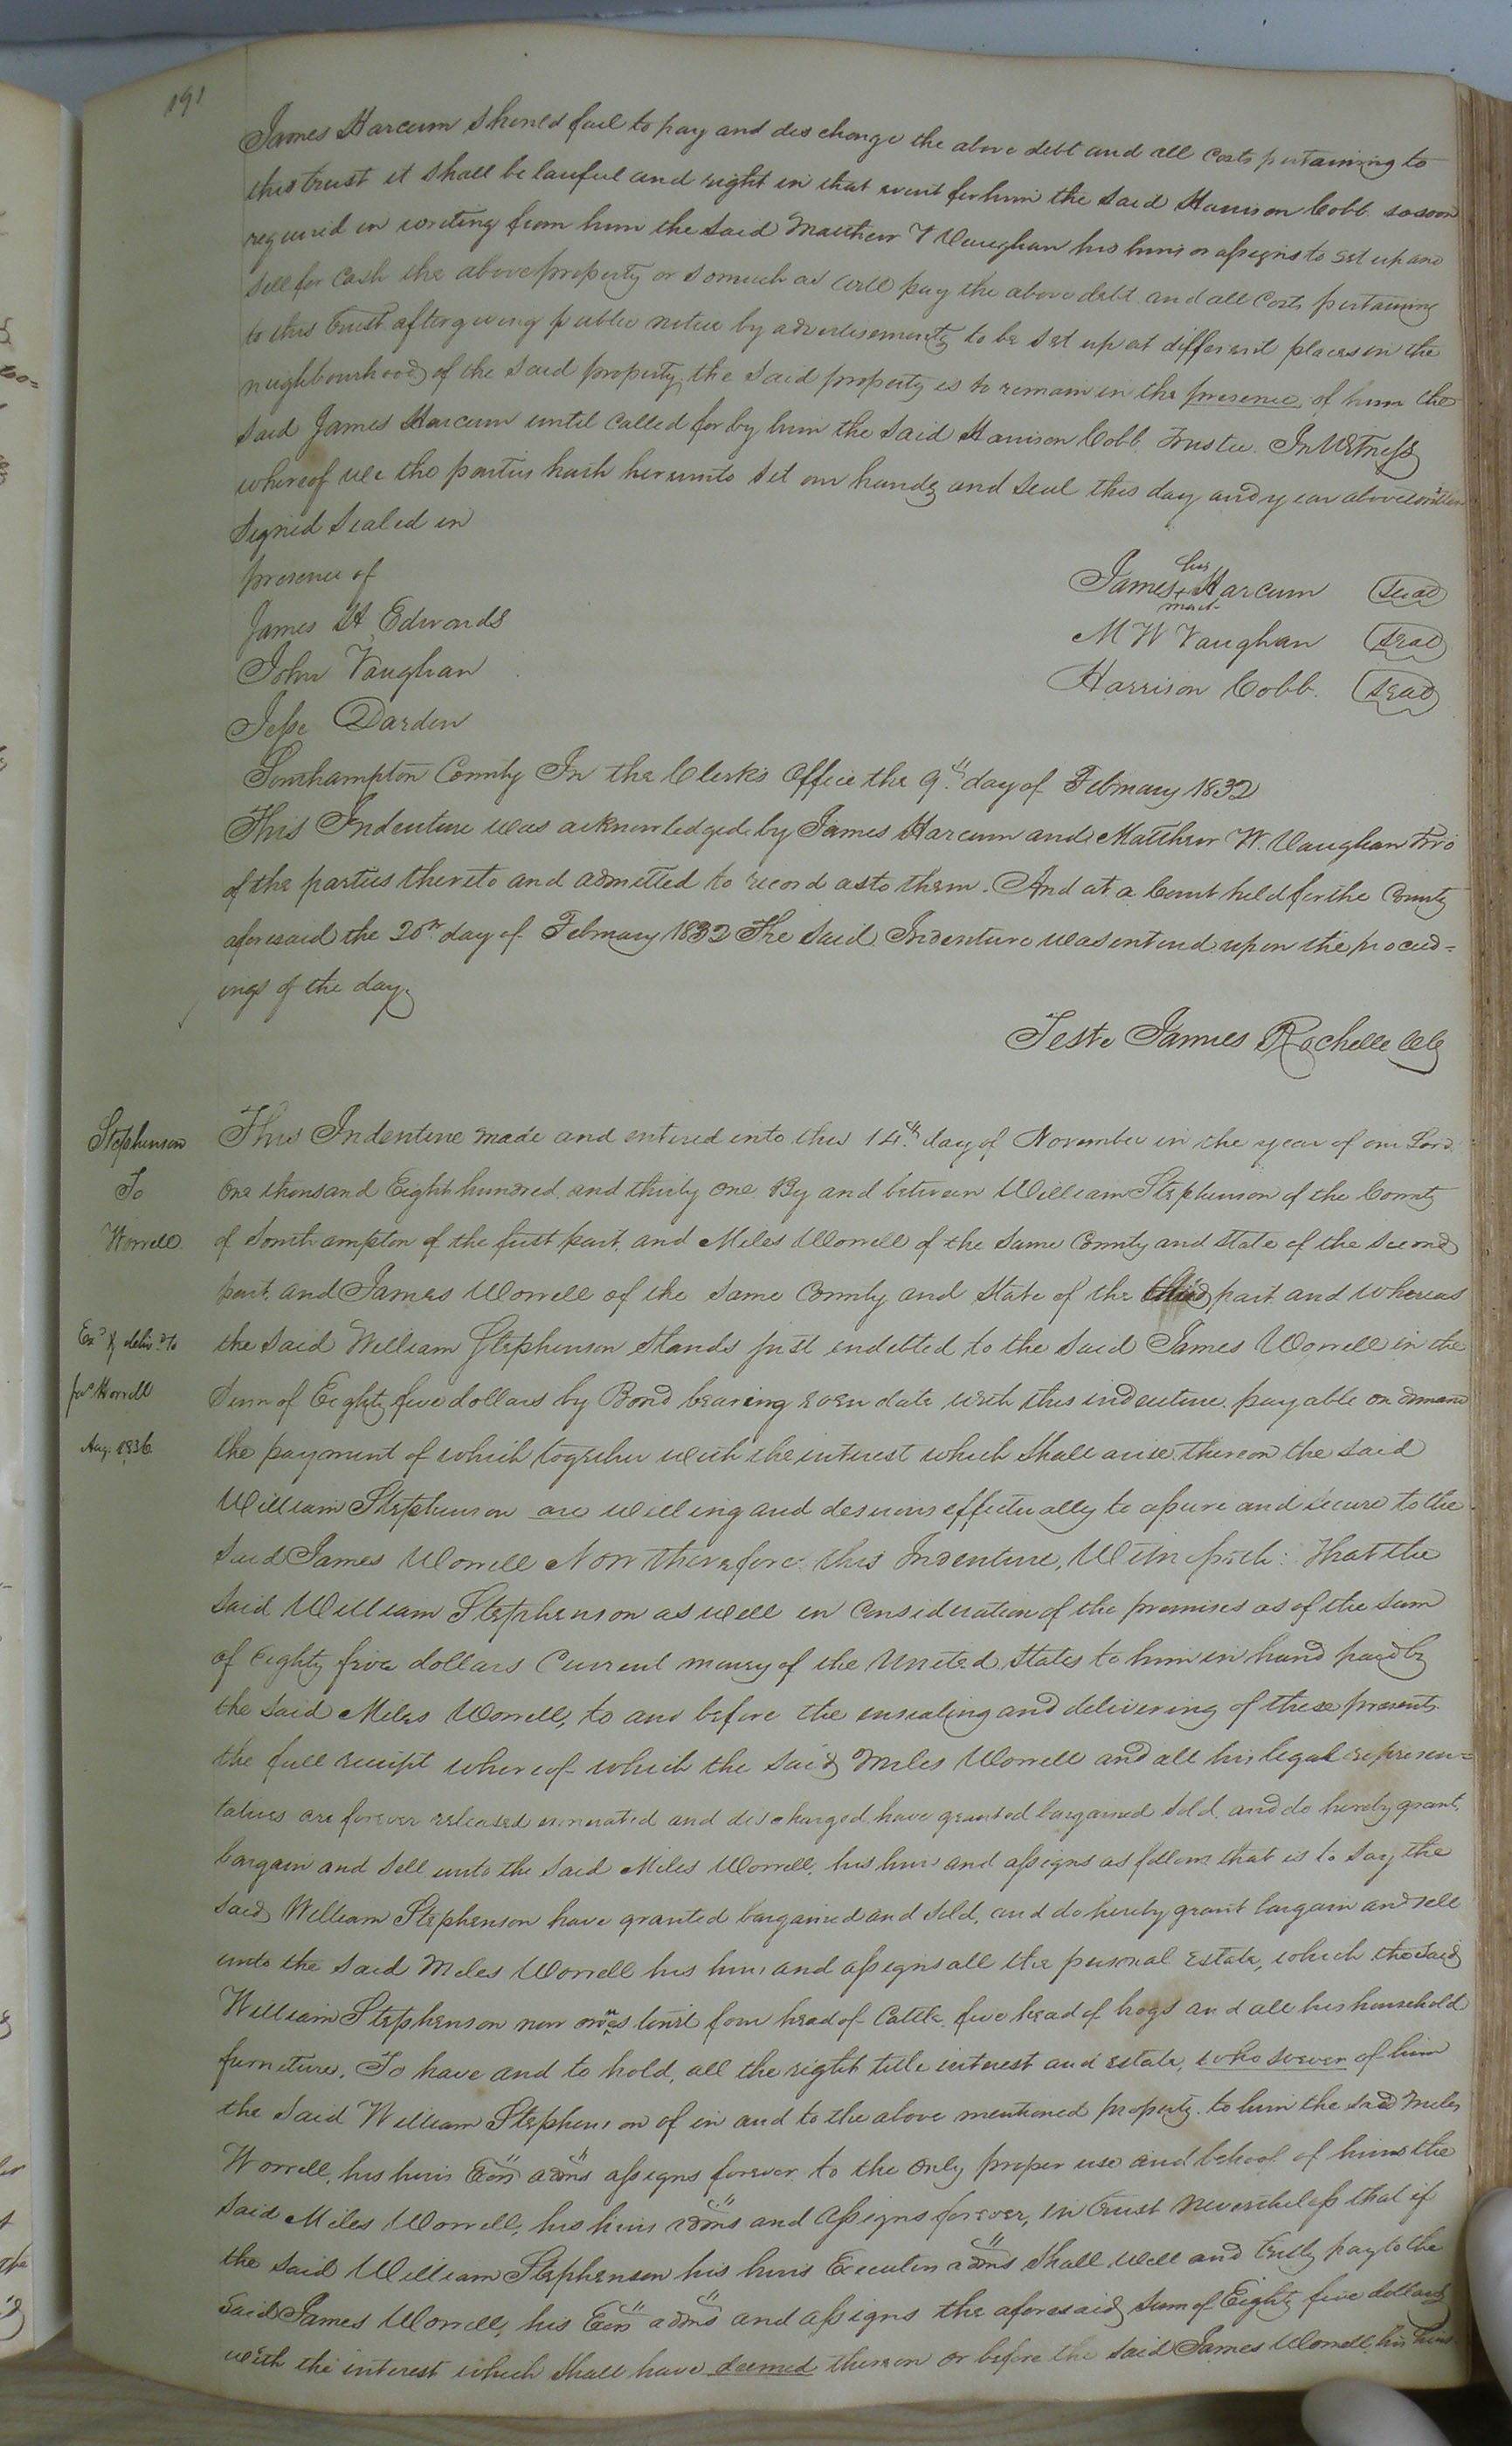 191
James Harcum should fail to pay and discharge the above debt and all costs pertaining to
this trust it shall be lawful and right in that event for him the said Harrison Cobb so soon
required in writing from him the said Matthew T Vaughan his heirs or assigns to set up and
sell for cash the above property or so much as will pay the above debt and all costs pertaining
to this trust after giving public notice by advertisements to be set up at different places in the
neighbourhood of the said property, the said property is to remain in the presence of him the
said James Harcum until called for by him the said Harrison Cobb Trustee. In Witness
whereof we the parties hath hereunto set our hands and seal this day and year above written
Signed Sealed in
presence of
James H Edwards
John Vaughan
Jesse Darden
his
James + Harcum Seal
mark
M W Vaughan Seal
Harrison Cobb. Seal
Southampton County In the Clerks Office the 9th day of February 1832
This Indenture was acknowledged by James Harcum and Matthew W. Vaughan two
of the parties thereto and admitted to record as to them. And at a Court held for the County
aforesaid the 20th day of February 1832 The said Indenture was entered upon the proceed=
ings of the day.
Teste James Rochelle Clk
Stephenson
To
Worrell
Exd & delivd to
Jas Worrell
Aug. 1836
This Indenture made and entered into this 14th day of November in the year of our Lord
One thousand Eight hundred and thirty one By and between William Stephenson of the County
of Southampton of the first part, and Miles Worrell of the same County and state of the second
part, and James Worrell of the same County and State of the third part and whereas
the said William Stephenson stands just indebted to the said James Worrell in the
Sum of Eighty five dollars by Bond bearing even date with this indenture payable on demand
the payment of which together with the interest which shall arise thereon the said
William Stephenson are willing and desirous effectually to assure and secure to the
said James Worrell Now therefore this Indenture, Witnesseth: That the
said William Stephenson as well in Consideration of the premises as of the sum
of Eighty five dollars Current money of the United States to him in hand paid by
the said Miles Worrell, to and before the ensealing and delivering of these presents
the full receipt whereof which the said Miles Worrell and all his legal represen=
tatives are forever released and discharged have granted bargained sold, and do hereby grant,
bargain and sell unto the said Miles Worrell, his heirs and assigns as follows that is to say the
said William Stephenson have granted bargained and sold, and do hereby grant bargain and sell
unto the said Miles Worrell his heirs and assigns all the personal estate, which the said
William Stephenson now owns towit four head of Cattle, five head of hogs and all his household
furniture. To have and to hold, all the right title interest and estate, whosoever of him
the said William Stephenson of in and to the above mentioned property to him the said Miles
Worrell, his heirs Exors admrs assigns forever to the only proper use and behoof of him the
said Miles Worrell, his heirs admrs and assigns forever, in trust nevertheless that if
the said William Stephenson his heirs Executors admrs shall well and truly pay to the
said James Worrell, his Exors admrs and assigns the aforesaid sum of Eighty five dollars
with the interest which shall have deemed thereon or before the said James Worrell his heirs